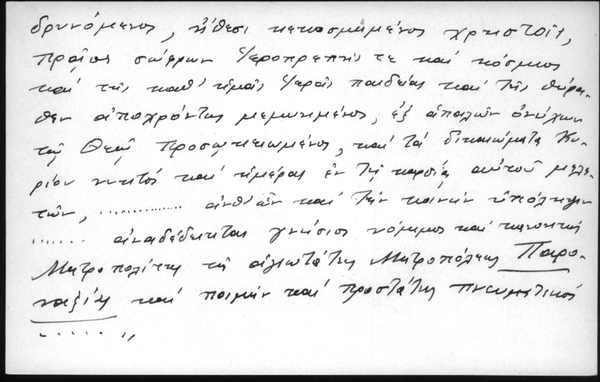 δρυνόμενος, ἤθεσι κεκοσμημένος χρηστοῖς,
πρᾶος σώφρων ἱεροπρεπής τε καὶ κόσμιος
καὶ τῆς καθ' ἡμᾶς ἱερᾶς παιδείας καὶ τῆς θύρα-
θεν ἀποχρώντως μεμυημένος, ἐξ ἁπαλῶν ὀνύχων
τῷ Θεῷ προσῳκειωμένος, καὶ τὰ δικαιώματα Κυ-
ρίου νυκτὸς καὶ ἡμέρας ἐν τῇ καρδίᾳ αὐτοῦ μελε-
τῶν, ............... ἀνθ' ὧν καὶ τὴν κοινὴν ὑπόληψιν
...... ἀναδέδεικται γνήσιος νόμιμος καὶ κανονικὸς
Μητροπολίτης τῆς ἁγιωτάτης Μητροπόλεως Παρο-
ναξίας καὶ ποιμὴν καὶ προστάτης πνευματικὸς
...... "